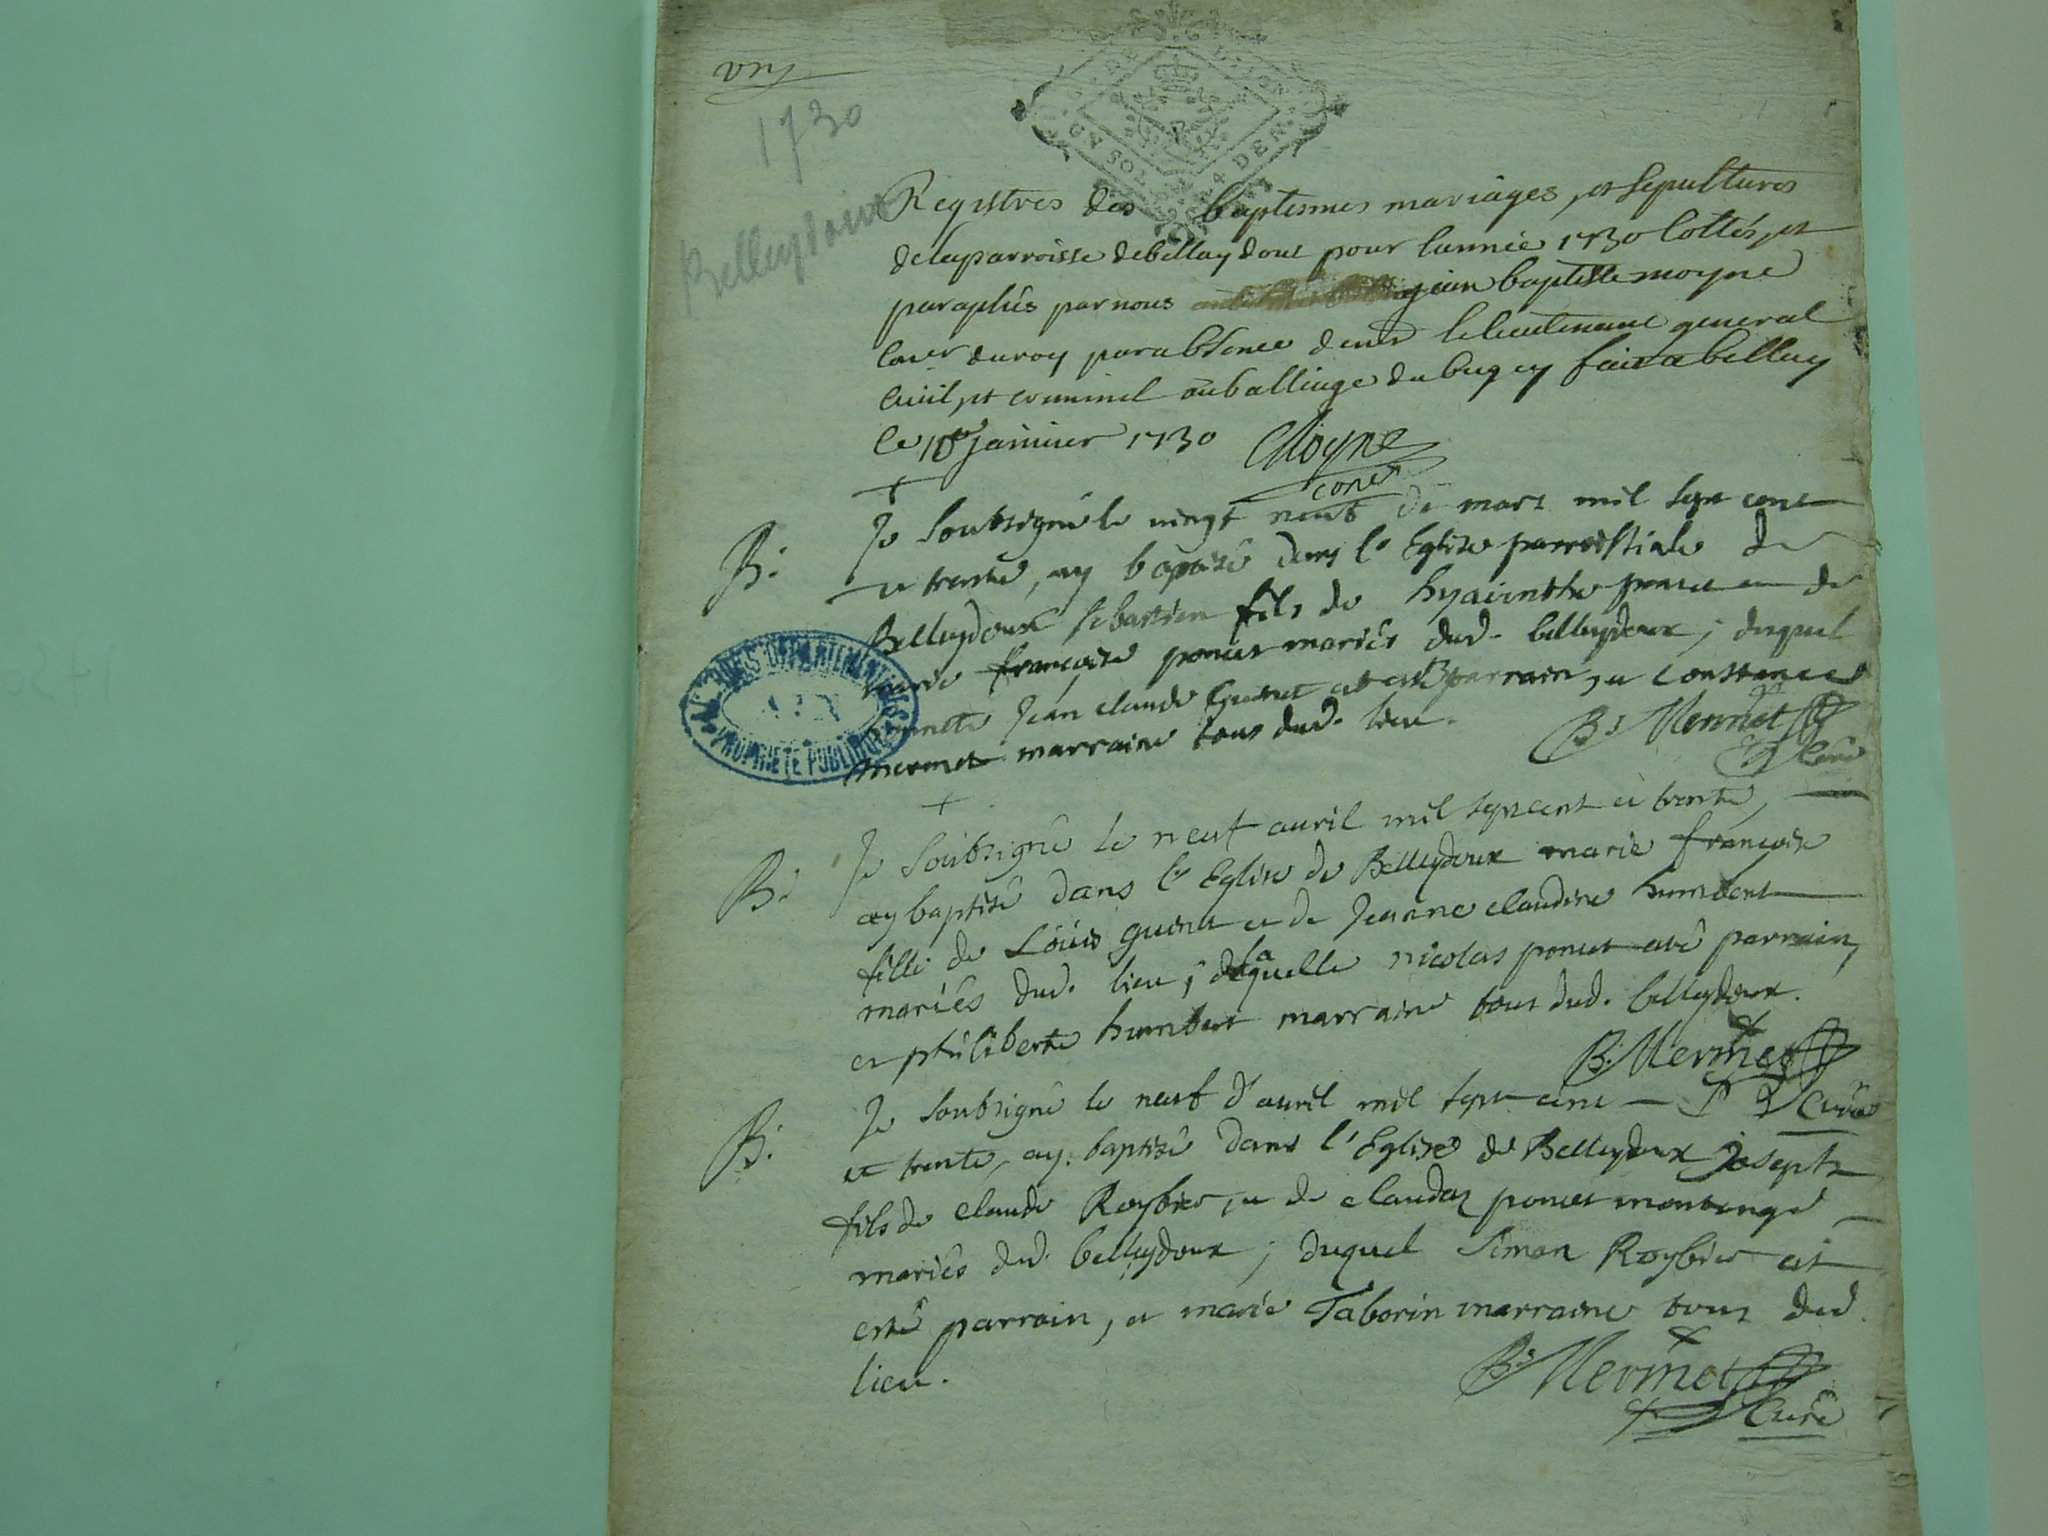 1730
Belleydoux
GN DE DIJON
UN SOL 4 DEN
Registres des baptesmes mariages, et sepultures
de la parroisse de bellay doux pour lannée 1730 cottés, et
paraphés par nous jean baptiste moyne
Coner du roy par absence de mr le lieutenant general
civil, et criminel au balliage du bugey fait a belley
le janvier 1730 Moyne
coner
B. Je soubsigné le vingt neuf de mars mil sept cent
et trente, ay baptisé dans l'Eglise parroissiale de
Belleydoux sebastien fils de hyacinthe poncet et de
françoise poncet mariés dud. belleydoux; duquel
Jean claude parrain, et constance
mermet marraine tous dud. lieu. B. Mermet
Curé
ARCHIVES DÉPARTEMENTALES
AIN
PROPRIÉTÉ PUBLIQUE
B. Je soubsigné le neuf avril mil sept cent et trente,
ay baptisé dans l'Eglise de Belleydoux marie françoise
fille de Loüis guinet et de Jeanne claudine humbert
mariés dud. lieu; de laquelle nicolas poncet a été parrain,
et philiberte humbert marraine tous dud. belleydoux.
B. Mermet
Curé
B. Je soubsigné le neuf d'avril mil sept cent
et trente, ay baptisé dans l'Eglise de Belleydoux Joseph
fils de claude Roybier, et de clauda poncet montange
mariés dud. belleydoux; duquel Simon Roybier at
esté parrain, et marie Taborin marraine tous dud.
lieu. B. Mermet
Curé